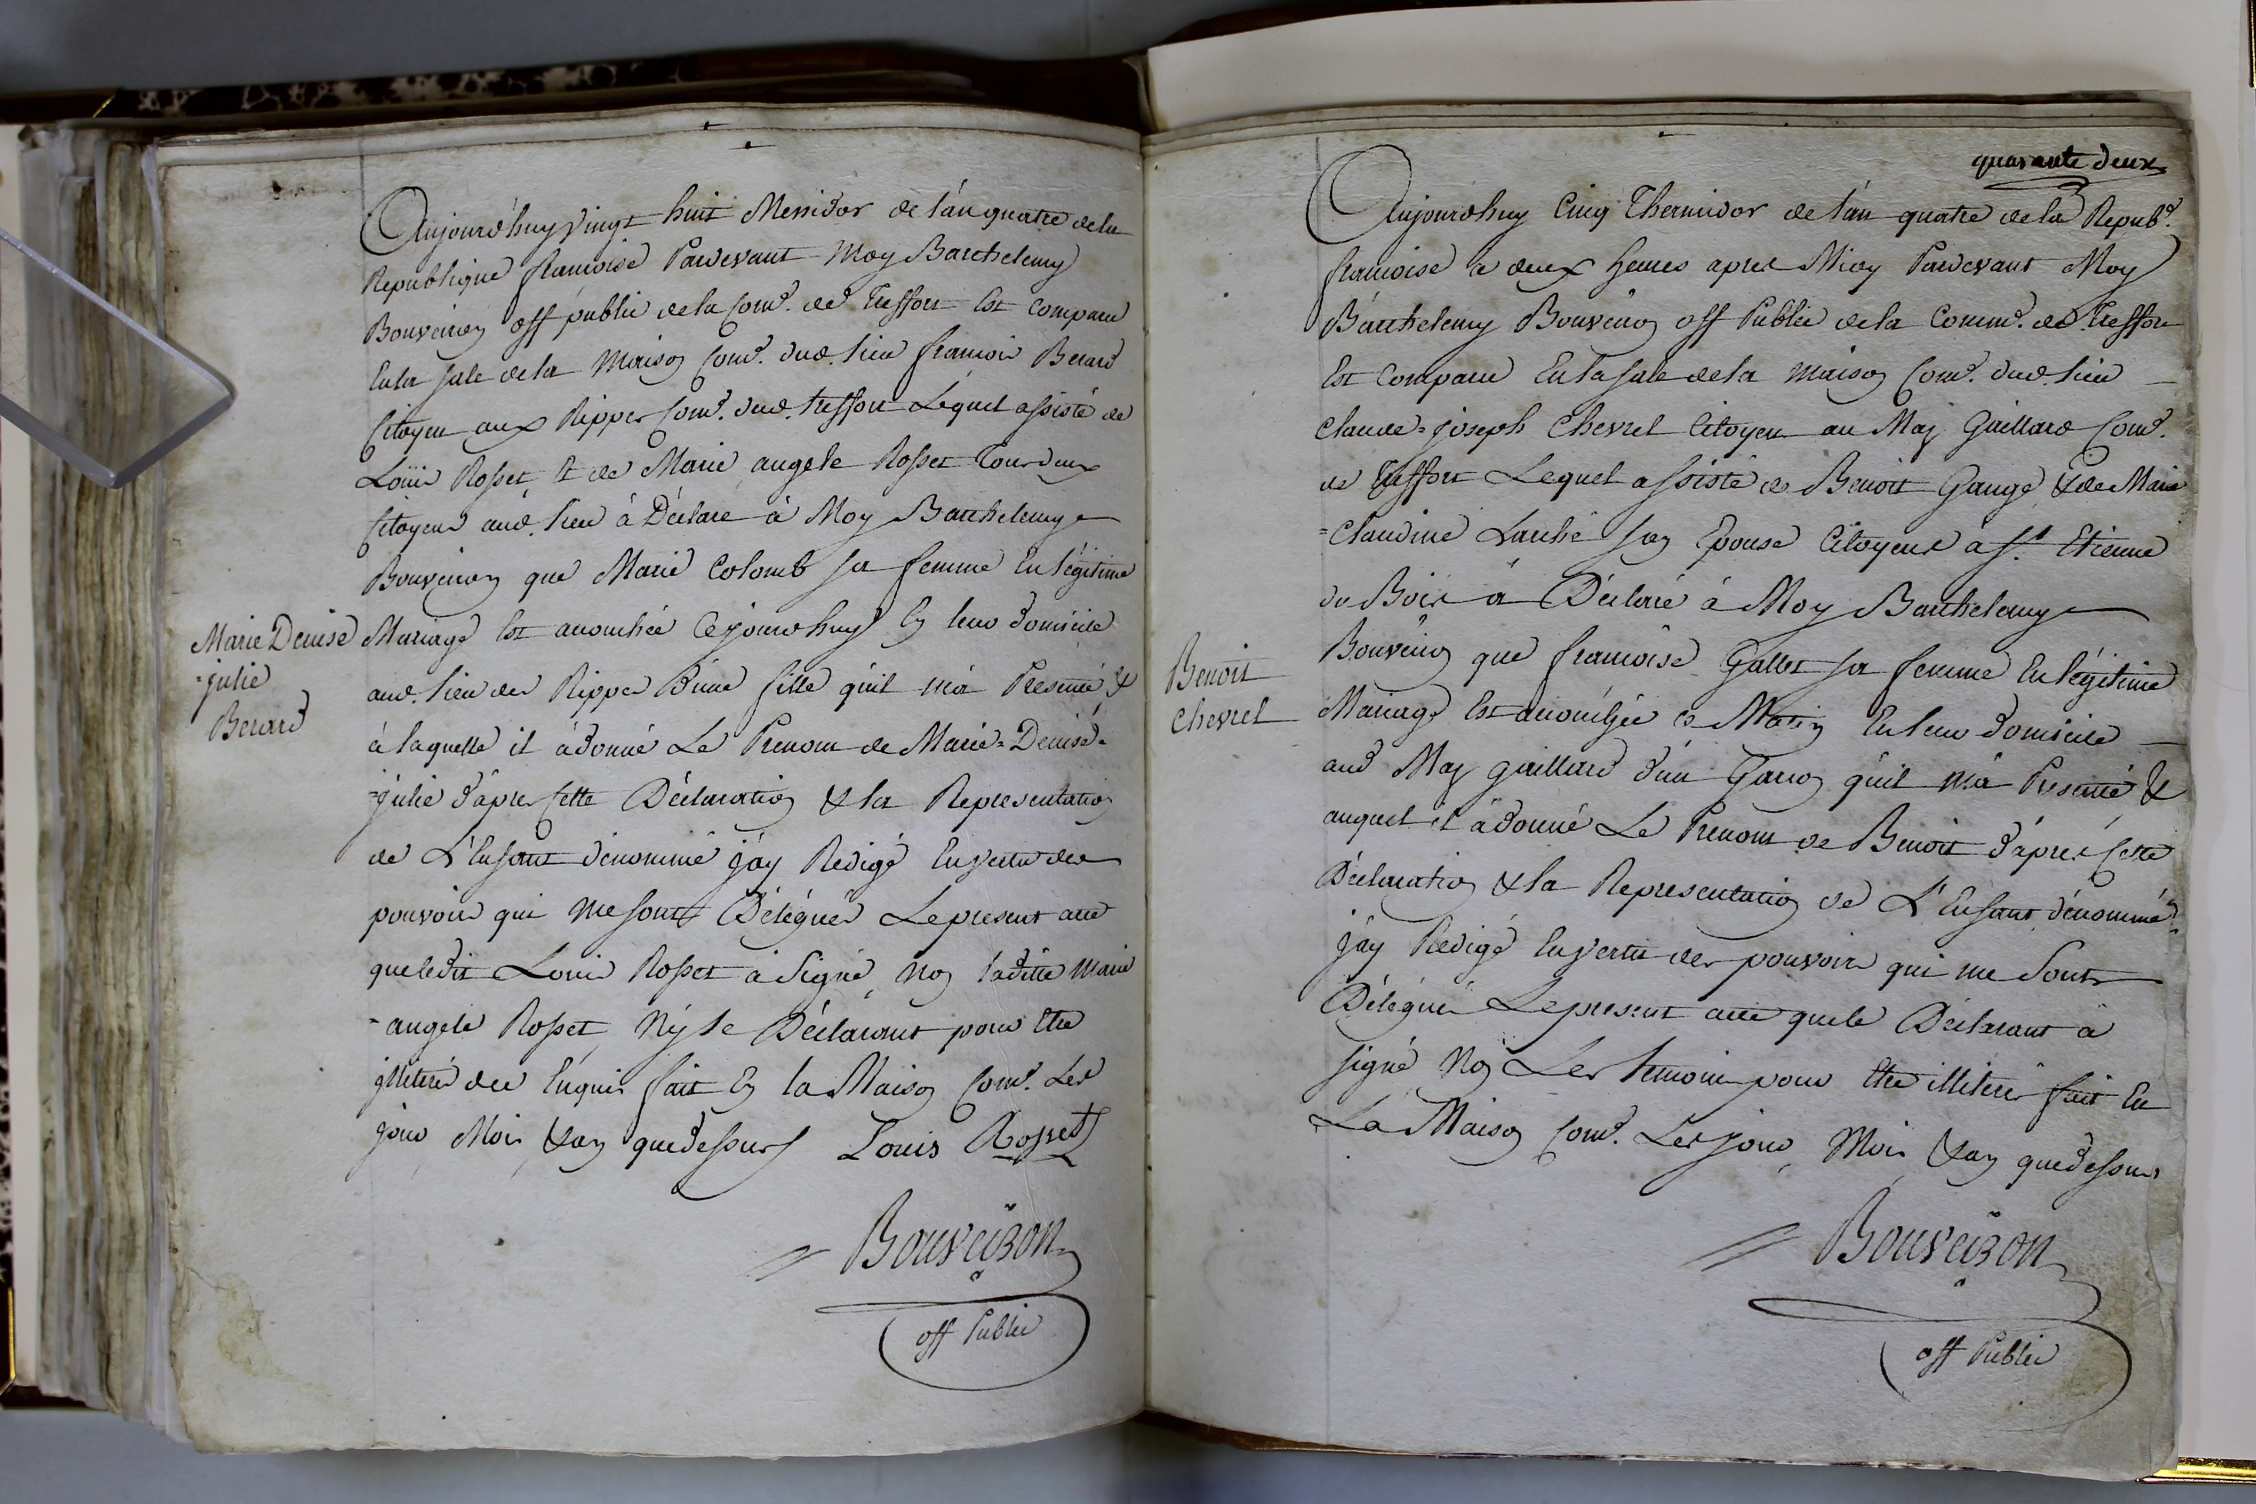 Aujourd'huy vingt huit Messidor de l'an quatre de la
Republique françoise Pardevant Moy Barthelemy
Bouveiron off public de la Com.e de Treffort Est comparu
En la sale de la Maison Com.e dud. lieu françois Berard
Citoyen aux Rippes Com.e dud. treffort Lequel assisté de
Loüis Rosset, & de Marie angele Rosset Tous deux
Citoyens aud. lieu à Déclaré à Moy Barthelemy
Bouveiron que Marie Colomb sa femme En légitime
Marie Denise
=julie
Berard
Mariage Est accouchée Cejourdhuy En leur domicile
aud. lieu des Rippes D'une fille qu'il m'à Presenté &
à laquelle il àdonné Le Prenom de Marie=Denise=
=julie d'après Cette Déclaration & la Representation
de L'Enfant dénommé j'ay Redigé En vertu des
pouvoirs qui me sonts Délégués Le present acte
queledit Louis Rosset à Signé, Non laditte Marie
=angele Rosset Ny le Déclarant pour Etre
illiteré de ce Enquis fait En la Maison Com.e Les
jour, Mois, & an que dessurs Louis Rosset
Bouveiron
off Public
quarante deux
Aujourdhuy Cinq Thermidor de l'an quatre de la Repub.e
françoise à deux heures après Midy Pardevant Moy
Barthelemy Bouveiron off Public de la Comm.e de Treffort
Est Comparu En la sale de la maison Com.e dud. lieu
Claude=joseph Chevrel Citoyen au Maj Gaillard Com.e
de Treffort Lequel assisté de Benoit Gauge & de Marie
=Claudine Larché son Epouse Citoyens à St Etienne
du Bois à Déclaré à Moy Barthelemy
Bouveiron que françoise Gallet sa femme En légitime
Benoit
Chevrel
Mariage Est accouchée ce Matin En leur domicile
aud Maj gaillard d'un Garçon qu'il m'à Presenté &
auquel il àdonné Le Prenom de Benoit d'après Cette
Déclaration & la Representation de L'Enfant dénommé
j'ay Redigé En vertu des pouvoirs qui me Sonts
Délégués Le present acte que le Déclarant à
signé Non Les temoins pour Etre illiterés fait En
La Maison Com.e Les jour, Mois & an que dessous
Bouveiron
off Public